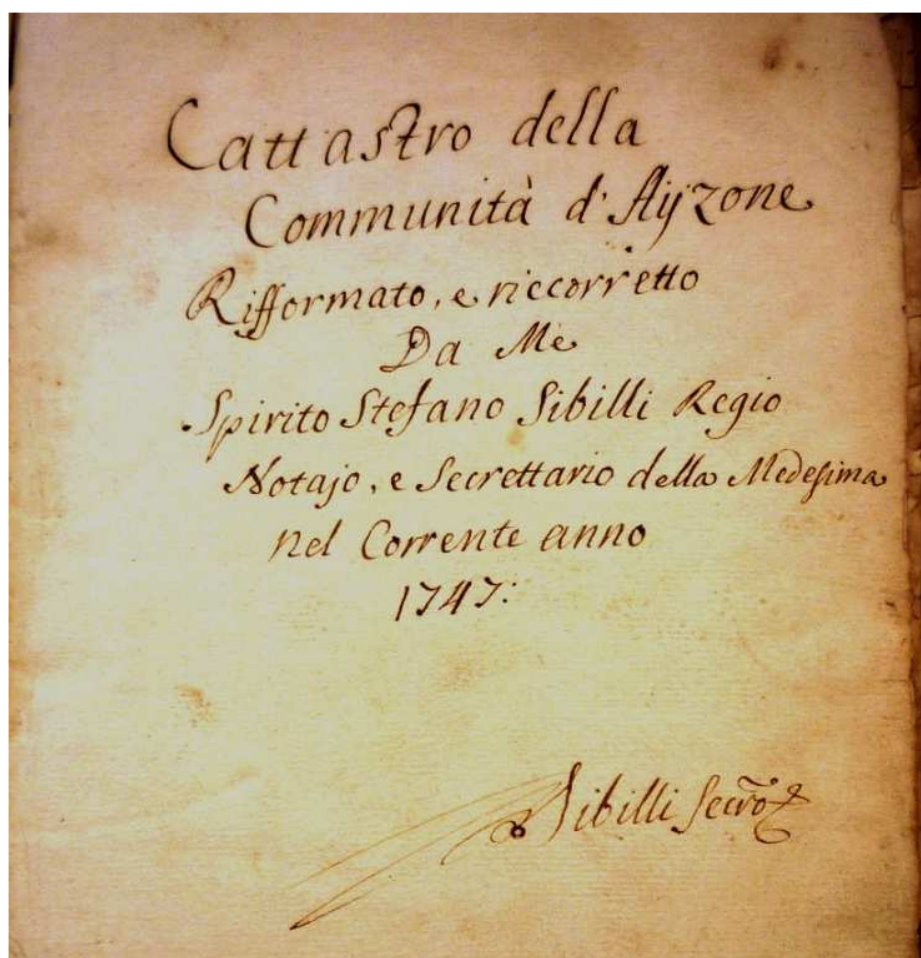 Cattastro della
Communità d'Ayzone
Rifformato, e riccorretto
Da Me
Spirito Stefano Sibilli Regio
Notajo, e Secrettario della Medesima
nel Corrente anno
1747:
Sibilli Secro